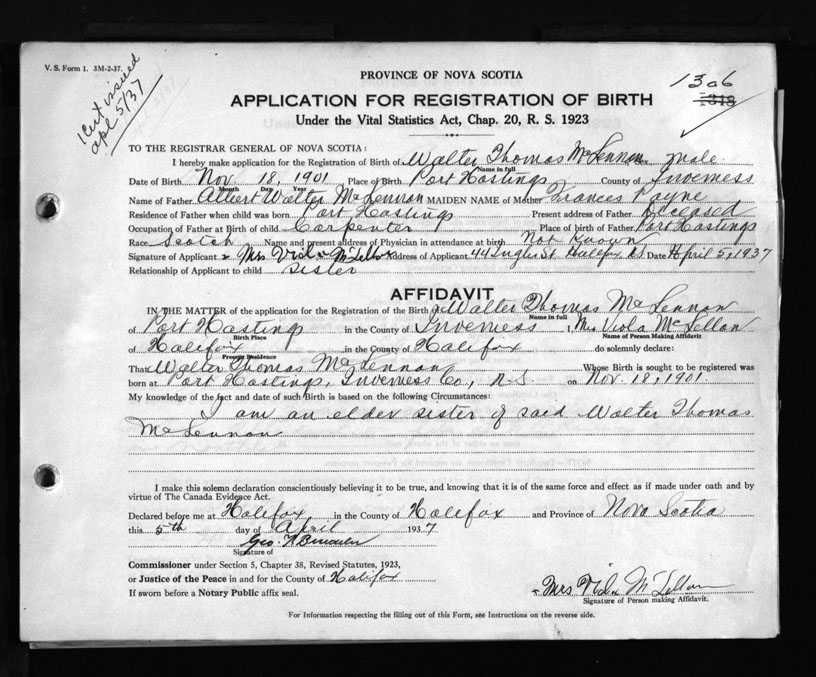 V. S. Form 1. 3M-2-37.
Cert issued
apl 5/37
PROVINCE OF NOVA SCOTIA
1306
1318
APPLICATION FOR REGISTRATION OF BIRTH
Under the Vital Statistics Act, Chap. 20, R. S. 1923
TO THE REGISTRAR GENERAL OF NOVA SCOTIA:
I hereby make application for the Registration of Birth of Walter Thomas McLennan male
Name in full
Date of Birth Nov. 18, 1901 Place of Birth Port Hastings County of Inverness
Month Day Year
Name of Father Albert Walter McLennan MAIDEN NAME of Mother Frances Payne
Residence of Father when child was born Port Hastings Present address of Father Deceased
Occupation of Father at Birth of child Carpenter Place of birth of Father Port Hastings
Race Scotch Name and present address of Physician in attendance at birth Not Known
Signature of Applicant x Mrs Viola McLellan Address of Applicant 44 Inglis St. Halifax N.S. Date April 5, 1937
Relationship of Applicant to child sister
AFFIDAVIT
IN THE MATTER of the application for the Registration of the Birth of Walter Thomas McLennan
Name in full
of Port Hastings in the County of Inverness I, Mrs Viola McLellan
Birth Place Name of Person Making Affidavit
of Halifax in the County of Halifax do solemnly declare:
Present Residence
That Walter Thomas McLennan Whose Birth is sought to be registered was
born at Port Hastings, Inverness Co., N.S. on Nov. 18, 1901.
My knowledge of the fact and date of such Birth is based on the following Circumstances:
I am an elder sister of said Walter Thomas
McLennan
I make this solemn declaration conscientiously believing it to be true, and knowing that it is of the same force and effect as if made under oath and by
virtue of The Canada Evidence Act.
Declared before me at Halifax in the County of Halifax and Province of Nova Scotia
this 5th day of April 1937
Geo.
Signature of
Commissioner under Section 5, Chapter 38, Revised Statutes, 1923,
or Justice of the Peace in and for the County of Halifax
If sworn before a Notary Public affix seal.
x Mrs Viola McLellan
Signature of Person making Affidavit.
For Information respecting the filling out of this Form, see Instructions on the reverse side.